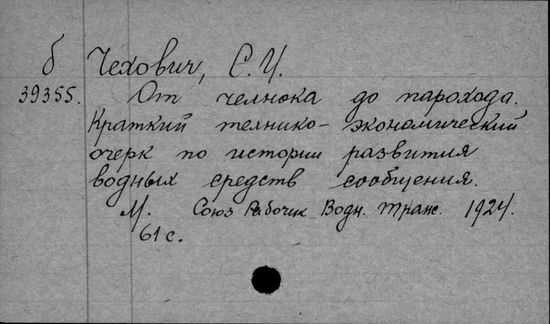 б Чехович, С.И.
39355. От челнока до парохода.
Краткий технико-экономический
очерк по истории развития
водных средств сообщения.
М. Союз Рабочих Водн. Транс. 1924.
61 с.